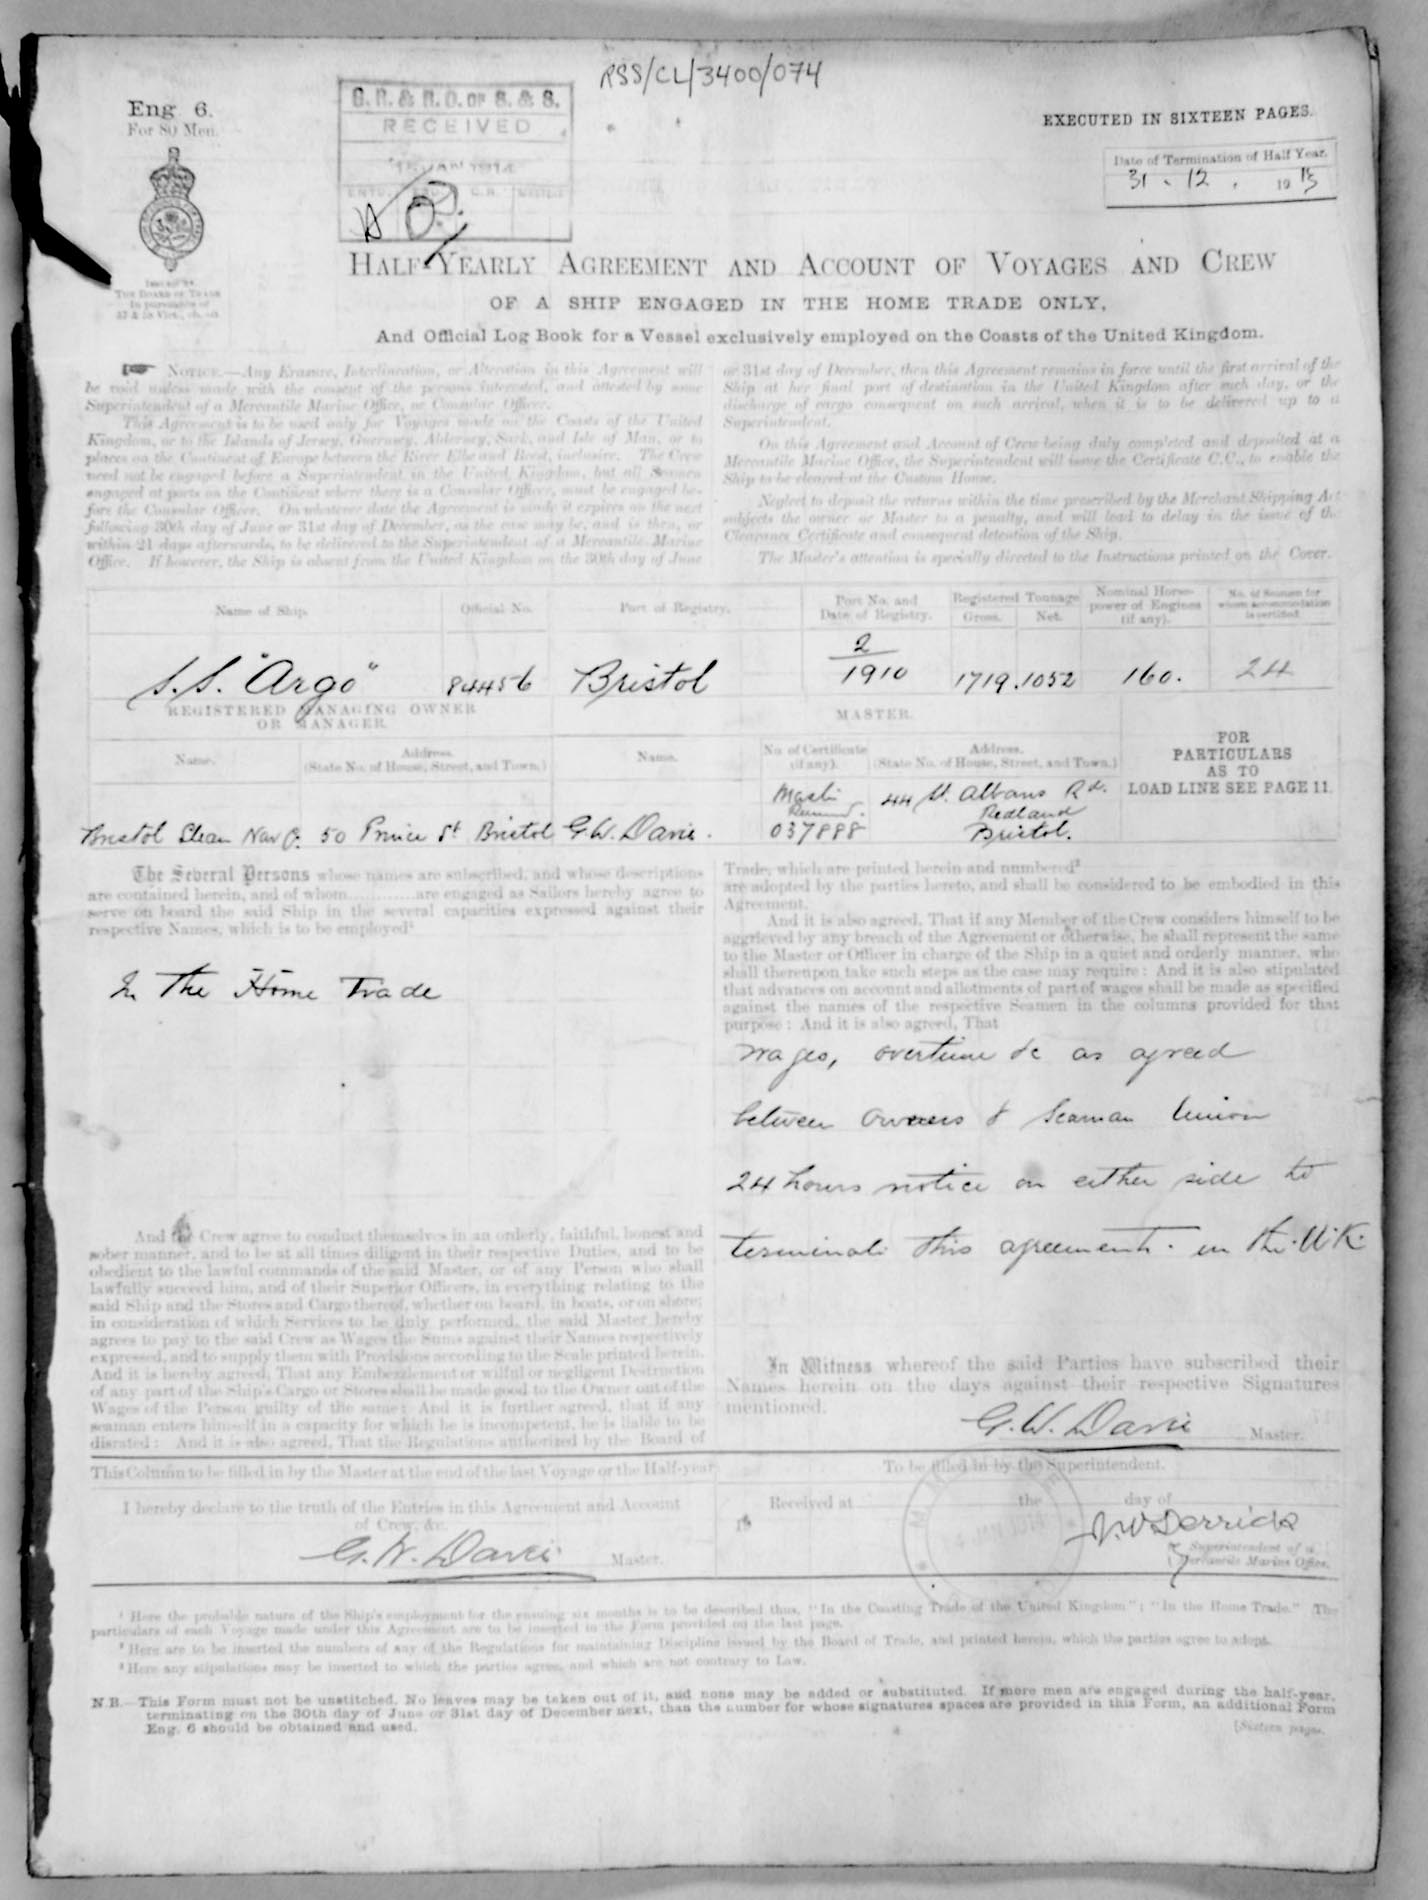 RSS/CL/3400/074
Eng 6.
For 80 Men.
G. R. & R. O. OF S. & S.
RECEIVED
15 JAN 1914
EXECUTED IN SIXTEEN PAGES.
Date of Termination of Half Year.
31 . 12 . 1913
Issued by
THE BOARD OF TRADE
In pursuance of
57 & 58 Vict., ch. 60.
HALF-YEARLY AGREEMENT AND ACCOUNT OF VOYAGES AND CREW
OF A SHIP ENGAGED IN THE HOME TRADE ONLY,
And Official Log Book for a Vessel exclusively employed on the Coasts of the United Kingdom.
NOTICE.—Any Erasure, Interlineation, or Alteration in this Agreement will
be void unless made with the consent of the persons interested, and attested by some
Superintendent of a Mercantile Marine Office, or Consular Officer.
This Agreement is to be used only for Voyages made on the Coasts of the United
Kingdom, or to the Islands of Jersey, Guernsey, Alderney, Sark, and Isle of Man, or to
places on the Continent of Europe between the River Elbe and Brest, inclusive. The Crew
need not be engaged before a Superintendent in the United Kingdom, but all Seamen
engaged at ports on the Continent where there is a Consular Officer, must be engaged be-
fore the Consular Officer. On whatever date the Agreement is made it expires on the next
following 30th day of June or 31st day of December, as the case may be, and is then, or
within 21 days afterwards, to be delivered to the Superintendent of a Mercantile Marine
Office. If however, the Ship is absent from the United Kingdom on the 30th day of June
or 31st day of December, then this Agreement remains in force until the first arrival of the
Ship at her final port of destination in the United Kingdom after such day, or the
discharge of cargo consequent on such arrival, when it is to be delivered up to a
Superintendent.
On this Agreement and Account of Crew being duly completed and deposited at a
Mercantile Marine Office, the Superintendent will issue the Certificate C.C., to enable the
Ship to be cleared at the Custom House.
Neglect to deposit the returns within the time prescribed by the Merchant Shipping Act
subjects the owner or Master to a penalty, and will lead to delay in the issue of the
Clearance Certificate and consequent detention of the Ship.
The Master's attention is specially directed to the Instructions printed on the Cover.
Name of Ship. Official No. Port of Registry. Port No. and Date of Registry. Registered Tonnage Gross. Net. Nominal Horse-power of Engines (if any). No. of Seamen for whom accommodation is certified
S.S. "Argo" 84456 Bristol 2/1910 1719 . 1052 160. 24
REGISTERED MANAGING OWNER
OR MANAGER.
MASTER.
Name. Address. (State No. of House, Street, and Town.) Name. No. of Certificate (if any). Address. (State No. of House, Street, and Town.)
FOR
PARTICULARS
AS TO
LOAD LINE SEE PAGE 11.
Bristol Steam Nav Co. 50 Prince St Bristol G.W. Davis. 037888 44 St. Albans Rd. Redland Bristol.
The Several Persons whose names are subscribed, and whose descriptions
are contained herein, and of whom............are engaged as Sailors hereby agree to
serve on board the said Ship in the several capacities expressed against their
respective Names, which is to be employed¹
In The Home Trade
And the Crew agree to conduct themselves in an orderly, faithful, honest and
sober manner, and to be at all times diligent in their respective Duties, and to be
obedient to the lawful commands of the said Master, or of any Person who shall
lawfully succeed him, and of their Superior Officers, in everything relating to the
said Ship and the Stores and Cargo thereof, whether on board, in boats, or on shore;
in consideration of which Services to be duly performed, the said Master hereby
agrees to pay to the said Crew as Wages the Sums against their Names respectively
expressed, and to supply them with Provisions according to the Scale printed herein.
And it is hereby agreed, That any Embezzlement or wilful or negligent Destruction
of any part of the Ship's Cargo or Stores shall be made good to the Owner out of the
Wages of the Person guilty of the same: And it is further agreed, that if any
seaman enters himself in a capacity for which he is incompetent, he is liable to be
disrated: And it is also agreed, That the Regulations authorized by the Board of
Trade, which are printed herein and numbered²
are adopted by the parties hereto, and shall be considered to be embodied in this
Agreement.
And it is also agreed, That if any Member of the Crew considers himself to be
aggrieved by any breach of the Agreement or otherwise, he shall represent the same
to the Master or Officer in charge of the Ship in a quiet and orderly manner, who
shall thereupon take such steps as the case may require: And it is also stipulated
that advances on account and allotments of part of wages shall be made as specified
against the names of the respective Seamen in the columns provided for that
purpose: And it is also agreed, That
wages, overtime &c as agreed
between owners & Seaman Union
24 hours notice on either side to
terminate this agreement. in the U.K.
In Witness whereof the said Parties have subscribed their
Names herein on the days against their respective Signatures
mentioned.
G.W. Davis Master.
This Column to be filled in by the Master at the end of the last Voyage or the Half-year
To be filled in by the Superintendent.
I hereby declare to the truth of the Entries in this Agreement and Account
of Crew, &c.
G.W. Davis Master.
Received at the day of
19
Derrick
Superintendent of a
Mercantile Marine Office.
¹ Here the probable nature of the Ship's employment for the ensuing six months is to be described thus, "In the Coasting Trade of the United Kingdom"; "In the Home Trade." The
particulars of each Voyage made under this Agreement are to be inserted in the Form provided on the last page.
² Here are to be inserted the numbers of any of the Regulations for maintaining Discipline issued by the Board of Trade, and printed herein, which the parties agree to adopt.
³ Here any stipulations may be inserted to which the parties agree, and which are not contrary to Law.
N.B.—This Form must not be unstitched. No leaves may be taken out of it, and none may be added or substituted. If more men are engaged during the half-year,
terminating on the 30th day of June or 31st day of December next, than the number for whose signatures spaces are provided in this Form, an additional Form
Eng. 6 should be obtained and used.
[Sixteen pages.